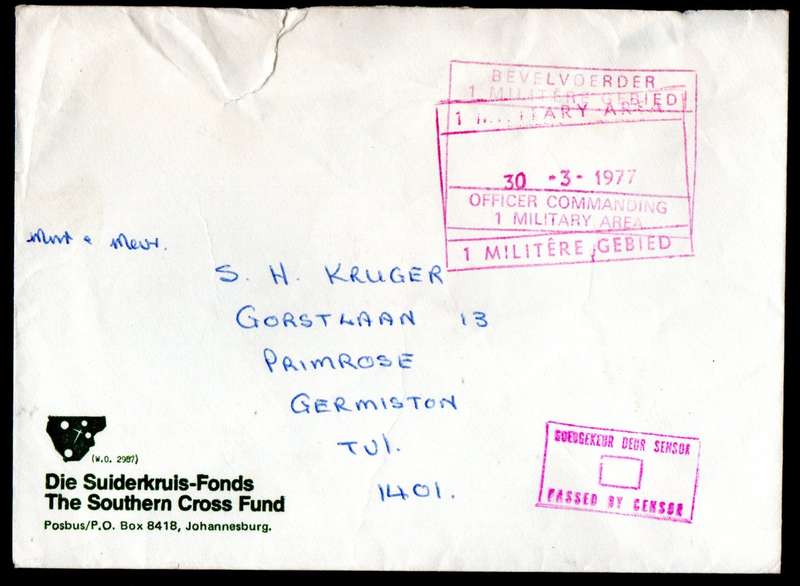 BEVELVOERDER
1 MILITÊRE GEBIED
1 MILITARY AREA
30 -3- 1977
OFFICER COMMANDING
1 MILITARY AREA
1 MILITÊRE GEBIED
S. H. KRUGER
GORSTLAAN 13
PRIMROSE
GERMISTON
TVL.
1401.
(W.O. 2987)
Die Suiderkruis-Fonds
The Southern Cross Fund
Posbus/P.O. Box 8418, Johannesburg.
GOEDGEKEUR DEUR SENSOR
PASSED BY CENSOR